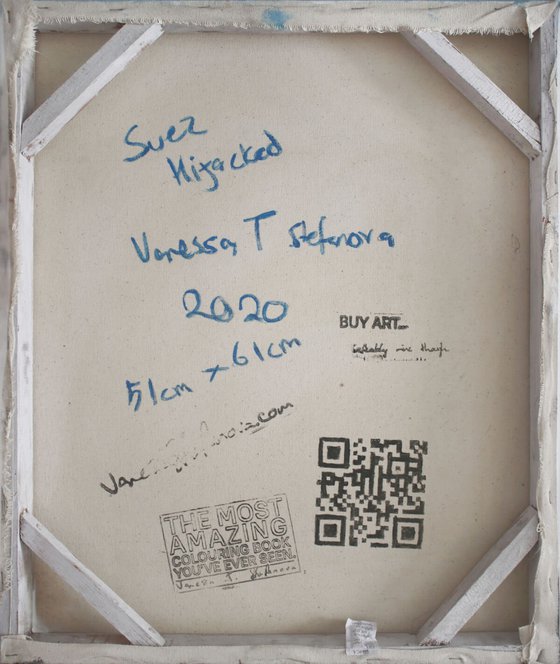 Suez
Hijacked
Vanessa T Stefanova
2020
51cm x 61cm
BUY ART...
mine though
THE MOST
AMAZING
COLOURING BOOK
YOU'VE EVER SEEN.
Vanessa T. Stefanova